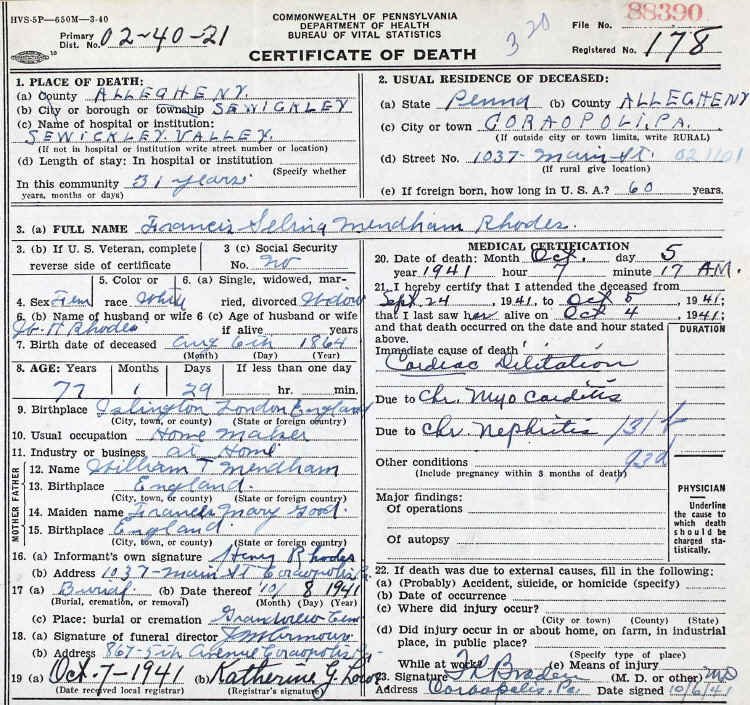 HVS-5P—650M—3-40
COMMONWEALTH OF PENNSYLVANIA
DEPARTMENT OF HEALTH
BUREAU OF VITAL STATISTICS
CERTIFICATE OF DEATH
Primary Dist. No. 02-40-21
320
File No. 88390
Registered No. 178
1. PLACE OF DEATH:
(a) County ALLEGHENY
(b) City or borough or township SEWICKLEY
(c) Name of hospital or institution:
SEWICKLEY VALLEY
(If not in hospital or institution write street number or location)
(d) Length of stay: In hospital or institution
(Specify whether
In this community 31 years
years, months or days)
2. USUAL RESIDENCE OF DECEASED:
(a) State Penna (b) County ALLEGHENY
(c) City or town CORAOPOLI, PA.
(If outside city or town limits, write RURAL)
(d) Street No. 1037- Main St. 021101
(If rural give location)
(e) If foreign born, how long in U. S. A.? 60 years.
3. (a) FULL NAME Francis Selina Mendham Rhodes.
3. (b) If U. S. Veteran, complete
reverse side of certificate
3 (c) Social Security
No. No
4. Sex Fem
5. Color or
race White
6. (a) Single, widowed, mar-
ried, divorced Widow
6. (b) Name of husband or wife
H Rhodes
6 (c) Age of husband or wife
if alive years
7. Birth date of deceased Aug 6th 1864
(Month) (Day) (Year)
8. AGE: Years Months Days If less than one day
77 1 29 hr. min.
9. Birthplace Islington London England
(City, town, or county) (State or foreign country)
10. Usual occupation Home Maker
11. Industry or business at Home
FATHER
12. Name William T Mendham
13. Birthplace England
(City, town, or county) (State or foreign country)
MOTHER
14. Maiden name Francis Mary Good.
15. Birthplace England.
(City, town, or county) (State or foreign country)
16. (a) Informant's own signature Henry Rhodes
(b) Address 1037- Main St Coraopolis Pa.
17 (a) Burial. (b) Date thereof 10/ 8 1941
(Burial, cremation, or removal) (Month) (Day) (Year)
(c) Place: burial or cremation Grandview Cem
18. (a) Signature of funeral director
(b) Address 867-5th Avenue Coraopolis Pa
19 (a) Oct-7-1941 (b) Katherine G.
(Date received local registrar) (Registrar's signature)
MEDICAL CERTIFICATION
20. Date of death: Month Oct. day 5
year 1941 hour 7 minute 17 AM.
21. I hereby certify that I attended the deceased from
Sept. 24, 1941, to Oct 5, 1941;
that I last saw her alive on Oct 4, 1941;
and that death occurred on the date and hour stated
above.
DURATION
Immediate cause of death
Cardiac Dilitation
Due to Chr. Myocarditis
Due to Chr. Nephritis 131
93d
Other conditions
(Include pregnancy within 3 months of death)
Major findings:
Of operations
Of autopsy
PHYSICIAN
Underline
the cause to
which death
should be
charged sta-
tistically.
22. If death was due to external causes, fill in the following:
(a) (Probably) Accident, suicide, or homicide (specify)
(b) Date of occurrence
(c) Where did injury occur?
(City or town) (County) (State)
(d) Did injury occur in or about home, on farm, in industrial
place, in public place?
(Specify type of place)
While at work? (e) Means of injury
23. Signature Braden (M. D. or other) MD
Address Coraopolis, Pa. Date signed 10/6/41